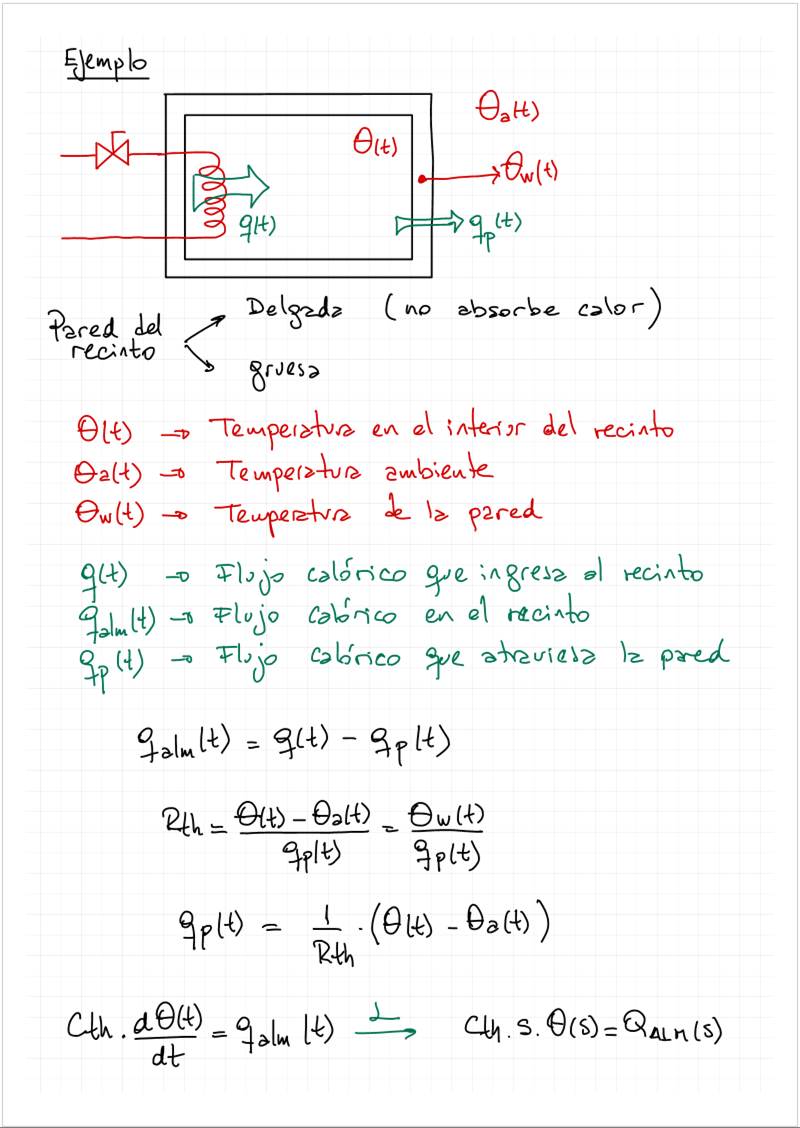 Ejemplo
θa(t)
θ(t)
θw(t)
q(t)
qp(t)
Pared del recinto
Delgada (no absorbe calor)
gruesa
θ(t) → Temperatura en el interior del recinto
θa(t) → Temperatura ambiente
θw(t) → Temperatura de la pared
q(t) → Flujo calórico que ingresa al recinto
qalm(t) → Flujo calórico en el recinto
qp(t) → Flujo calórico que atraviesa la pared
qalm(t) = q(t) - qp(t)
Rth = (θ(t) - θa(t))/qp(t) = θw(t)/qp(t)
qp(t) = 1/Rth · (θ(t) - θa(t))
Cth · dθ(t)/dt = qalm(t) ℒ→ Cth. s. θ(s) = QALM(s)